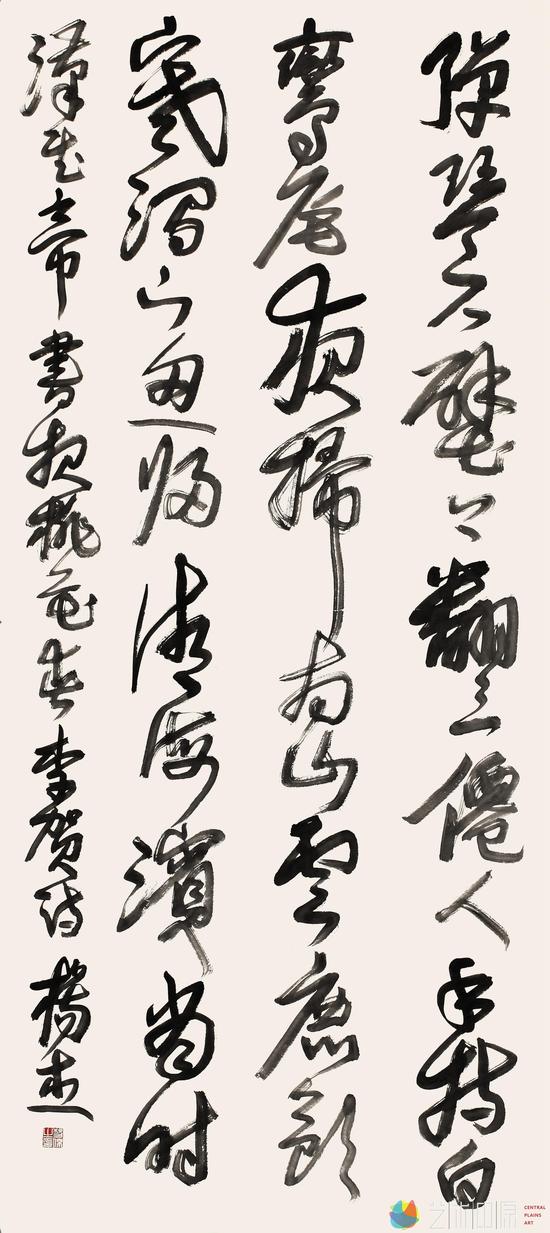 彈琴石壁上翻々一僊人手持白
鸞尾夜掃南山雲鹿飲
寒澗下魚歸清海濱當時
漢武帝書報桃花春李賀詩 楊
艺术中原
CENTRAL
PLAINS
ART